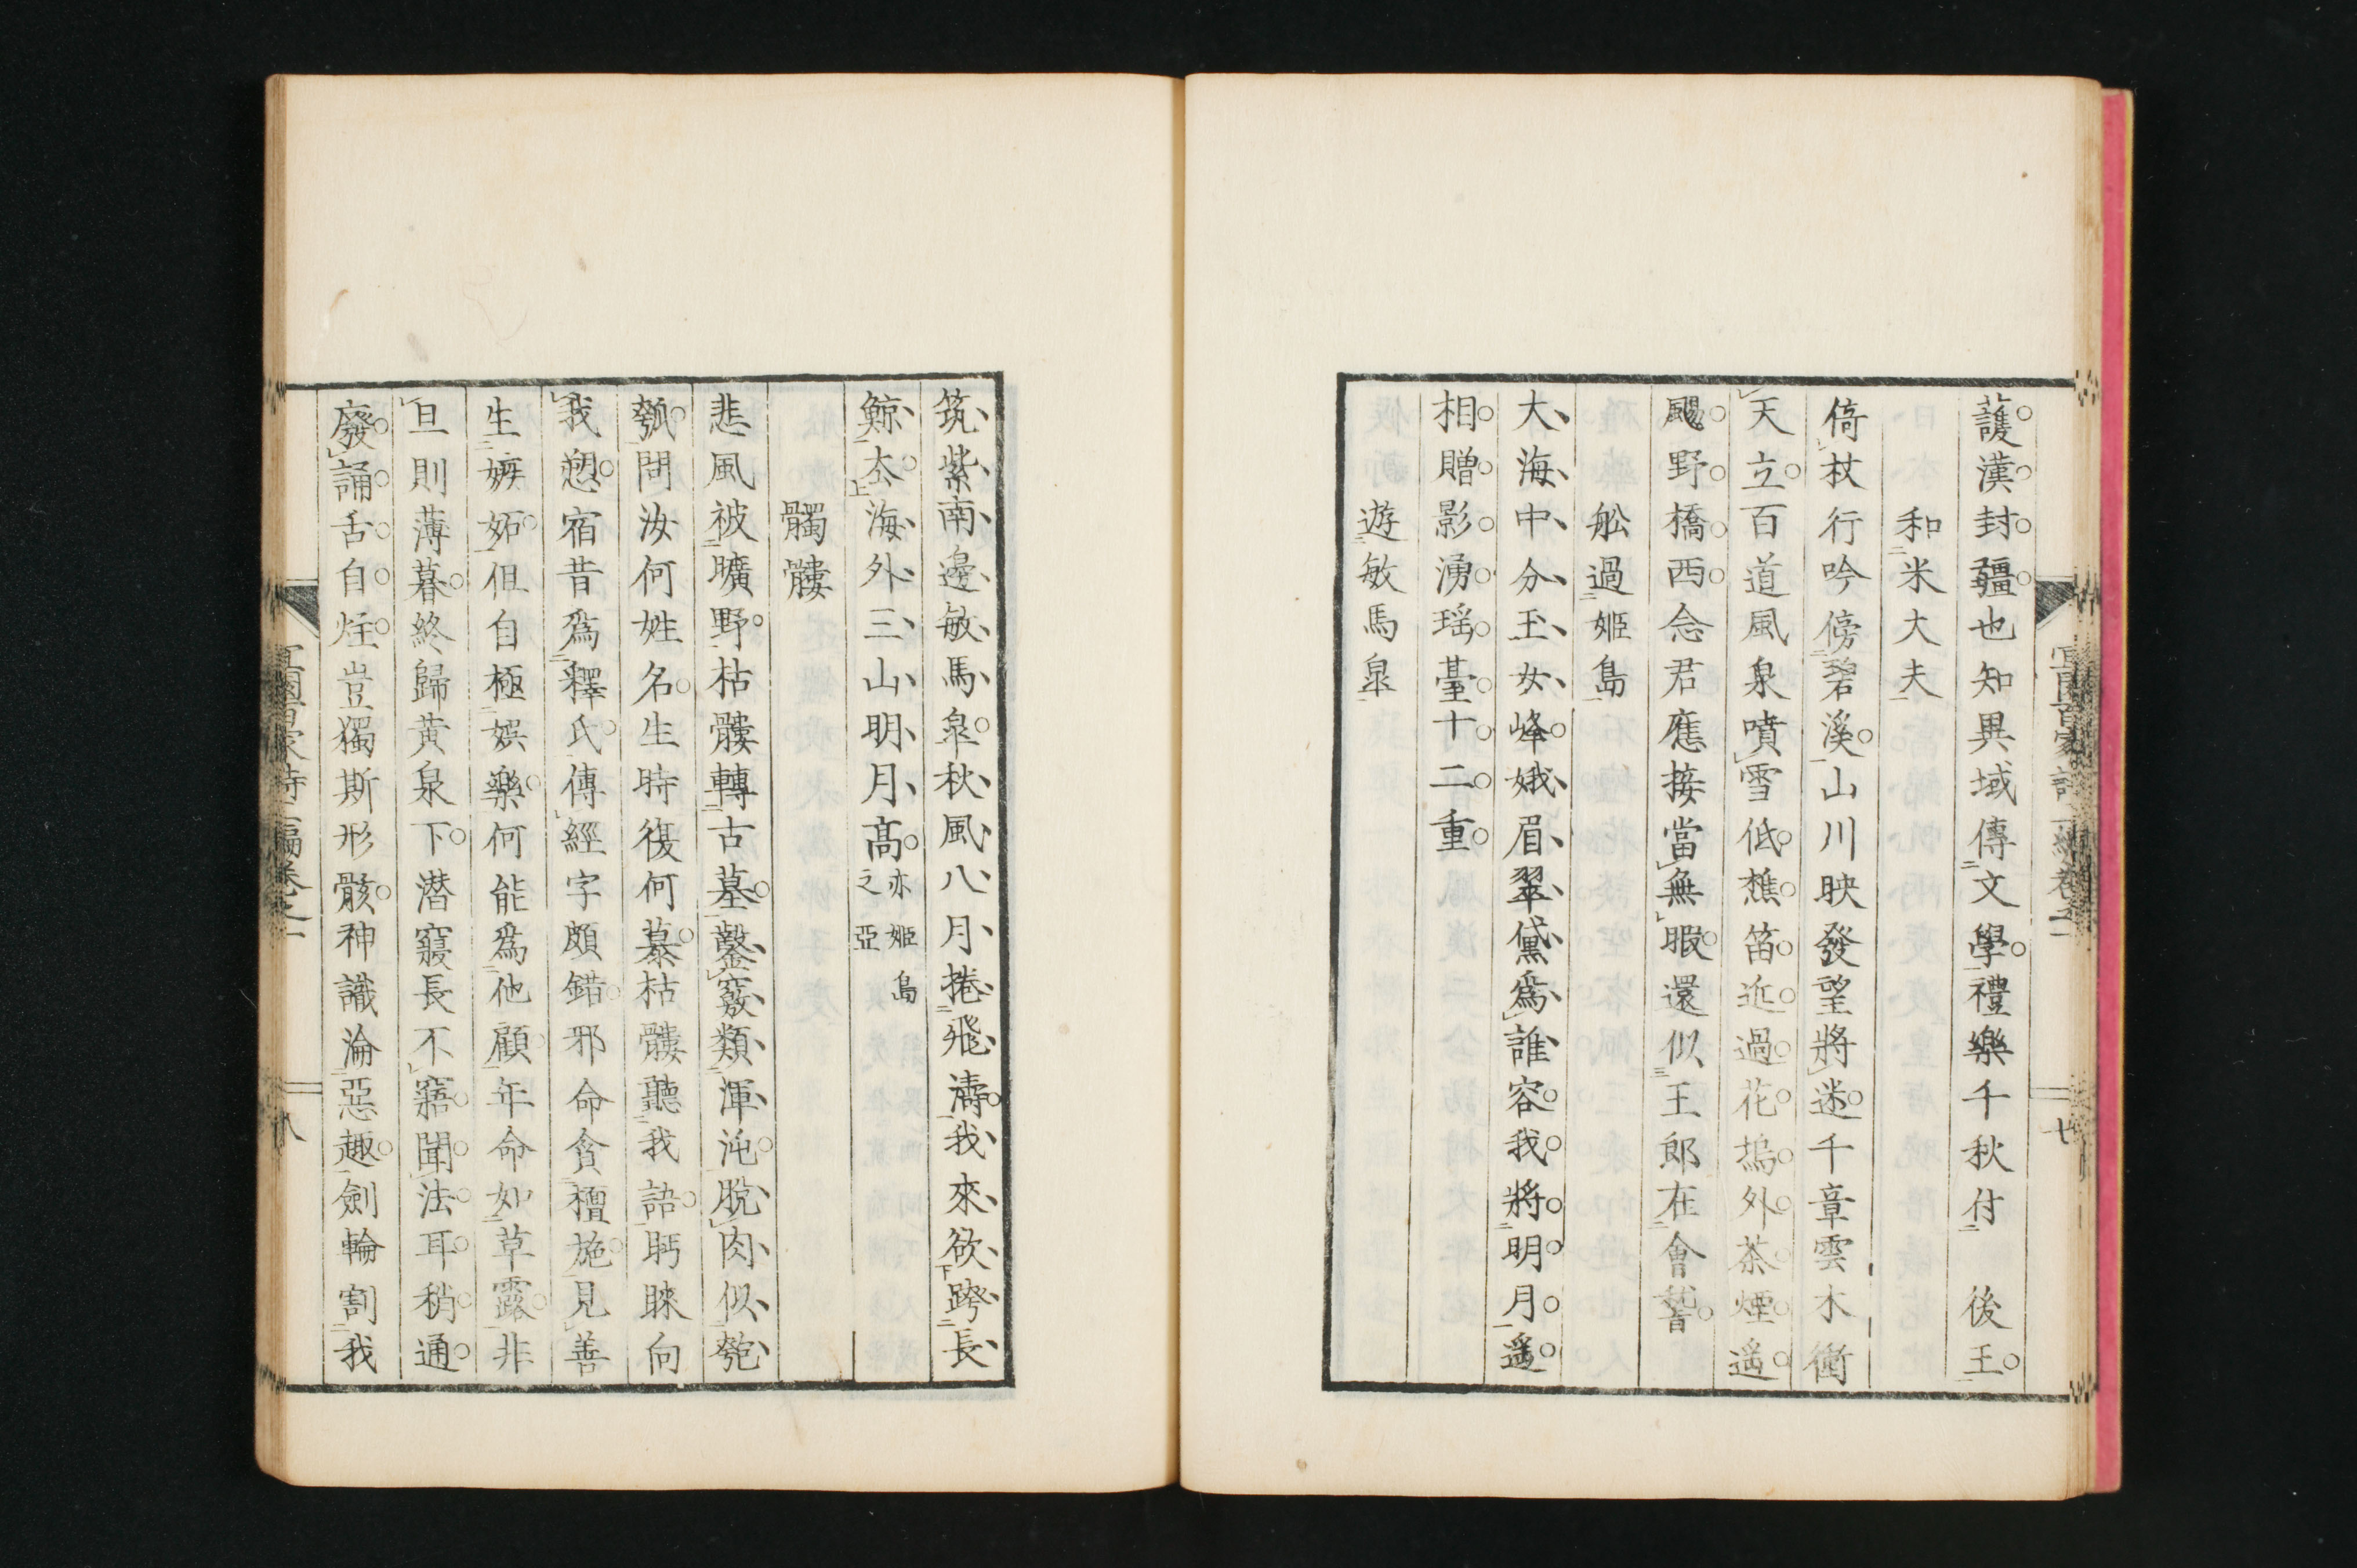 護漢封疆也知異域傳文學禮樂千秋付 後王
和米大夫
倚杖行吟傍碧溪山川映發望將迷千章雲木衝
天立百道風泉噴雪低樵笛近過花塢外茶煙遙
颺野橋西念君應接當無暇還似王郎在會稽
舩過姬島
大海中分玉女峰娥眉翠黛爲誰容我將明月遙
相贈影湧瑤臺十二重
遊敏馬皐
筑紫南邊敏馬皐秋風八月捲飛濤我來欲跨長
鯨去海外三山明月高亦姬島之亞
髑髏
悲風被曠野枯髏轉古墓鑿竅類渾沌脫肉似匏
瓠問汝何姓名生時復何慕枯髏聽我語眄睞向
我愬宿昔爲釋氏傳經字頗錯邪命貪檀施見善
生嫉妬但自極娯樂何能爲他顧年命如草露非
旦則薄暮終歸黃泉下潛寢長不寤聞法耳稍通
廢誦舌自烓豈獨斯形骸神識淪惡趣劍輪割我